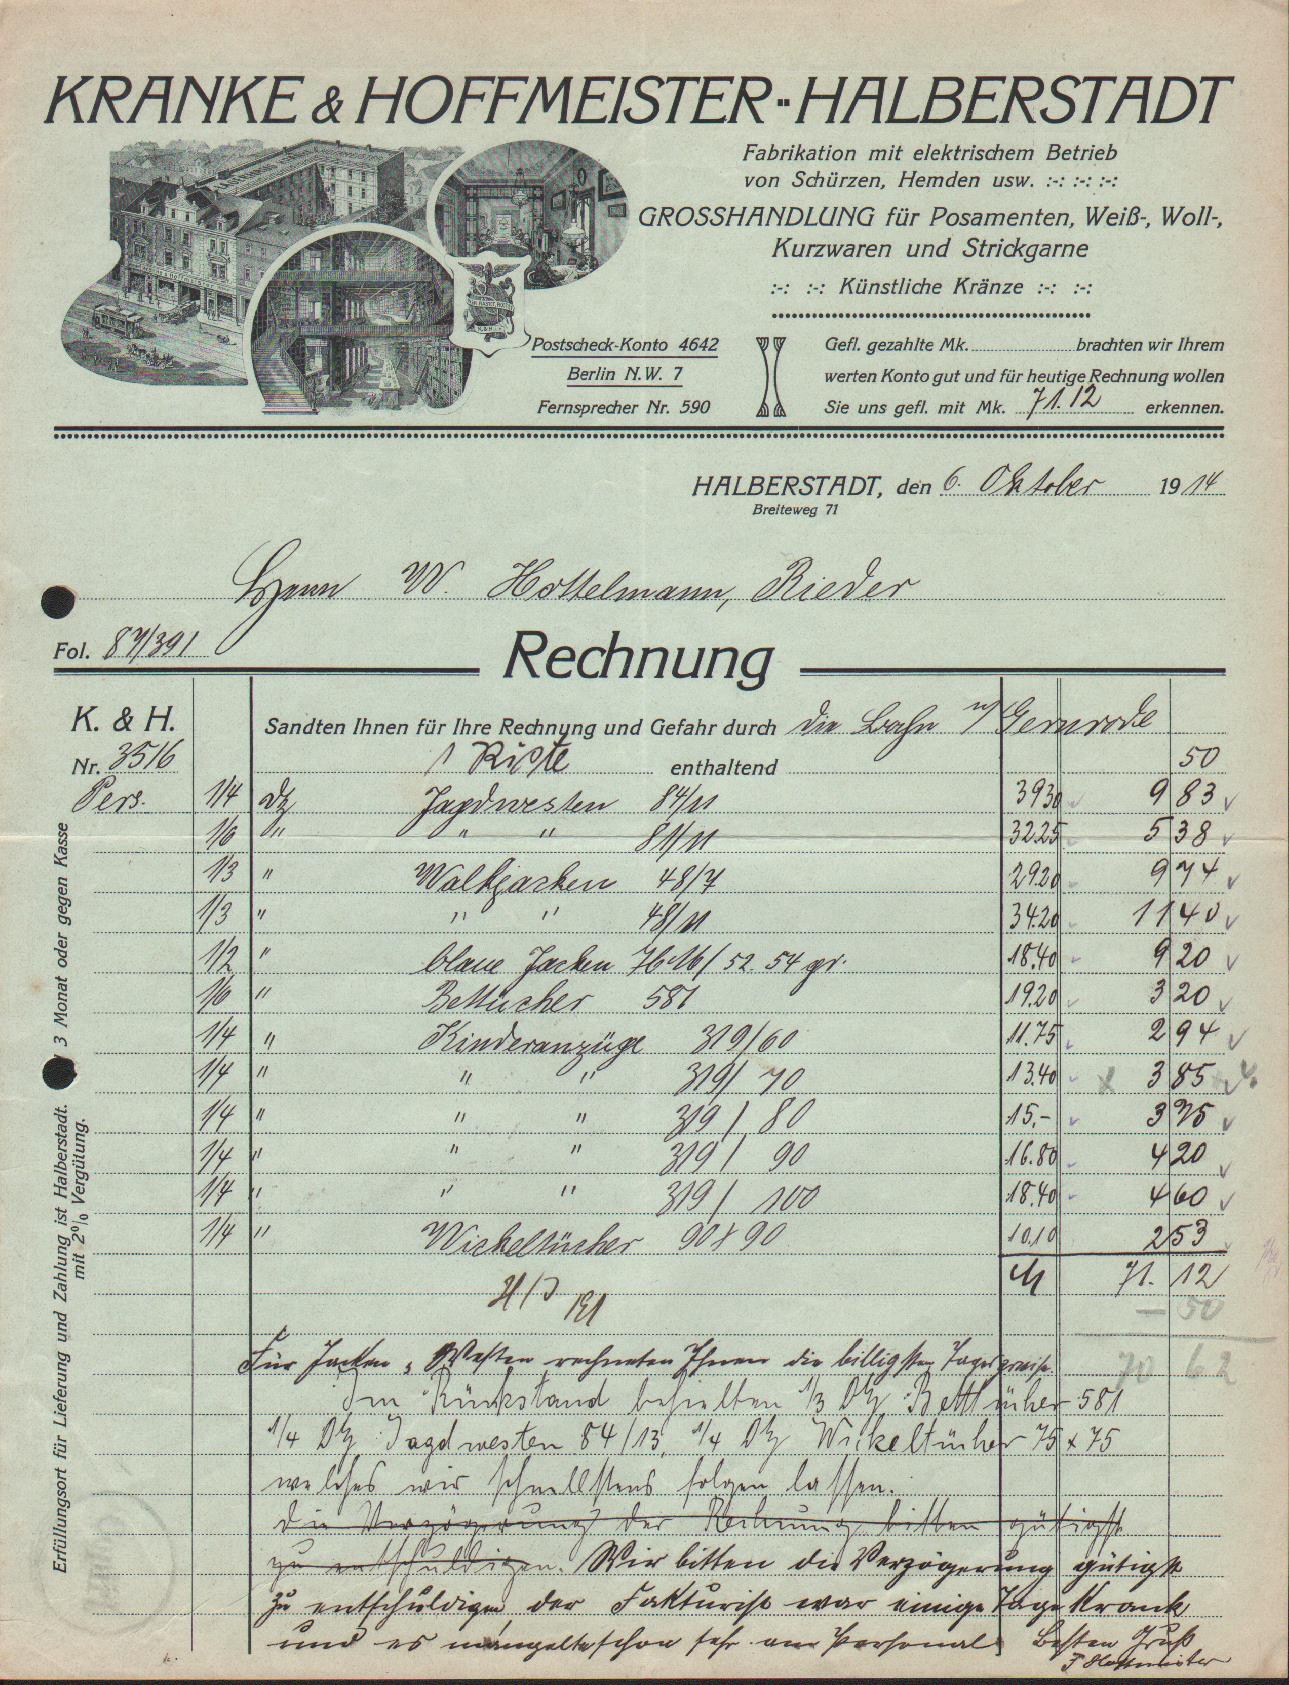 KRANKE & HOFFMEISTER-HALBERSTADT
Fabrikation mit elektrischem Betrieb
von Schürzen, Hemden usw. :-: :-: :-:
GROSSHANDLUNG für Posamenten, Weiß-, Woll-,
Kurzwaren und Strickgarne
:-: :-: Künstliche Kränze :-: :-:
Postscheck-Konto 4642
Berlin N.W. 7
Fernsprecher Nr. 590
Gefl. gezahlte Mk. brachten wir Ihrem
werten Konto gut und für heutige Rechnung wollen
Sie uns gefl. mit Mk. 71.12 erkennen.
HALBERSTADT, den 6. Oktober 1914
Breiteweg 71
Herrn W. Hottelmann, Rieder
Fol. 87/391
Rechnung
K. & H.
Nr. 3516
Sandten Ihnen für Ihre Rechnung und Gefahr durch die Bahn n/ Gernrode
1 Kiste enthaltend 50
Pers. 1/4 Dz Jagdwesten 84/11 39.30 9 83
1/6 " " " 81/11 32.25 5 38
1/3 " Walkjacken 48/7 29.20 9 74
1/3 " " " 48/11 34.20 11 40
1/2 " blaue Jacken 76-16/52. 54 gr. 18.40 9 20
1/6 " Bettücher 581 19.20 3 20
1/4 " Kinderanzüge 319/60 11.75 2 94
1/4 " " " 319/70 13.40 3 85
1/4 " " " 319/80 15,- 3 75
1/4 " " " 319/90 16.80 4 20
1/4 " " " 319/100 18.40 4 60
1/4 " Wickeltücher 90 x 90 10.10 2 53
M 71. 12
— 50
70 62
Für Jacken u. Westen rechneten Ihnen die billigsten Tagespreise.
Im Rückstand behielten 1/3 Dtz Betttücher 581
1/4 Dtz Jagdwesten 84/13, 1/4 Dtz Wickeltücher 75 x 75
welches wir schnellstens folgen lassen.
die Verzögerung der Rechnung bitten gütigst
zu entschuldigen. Wir bitten die Verzögerung gütigst
zu entschuldigen, der Fakturist war einige Tage krank
und es mangelte schon sehr am Personal. Besten Gruß
F Hoffmeister
Erfüllungsort für Lieferung und Zahlung ist Halberstadt. 3 Monat oder gegen Kasse
mit 2% Vergütung.